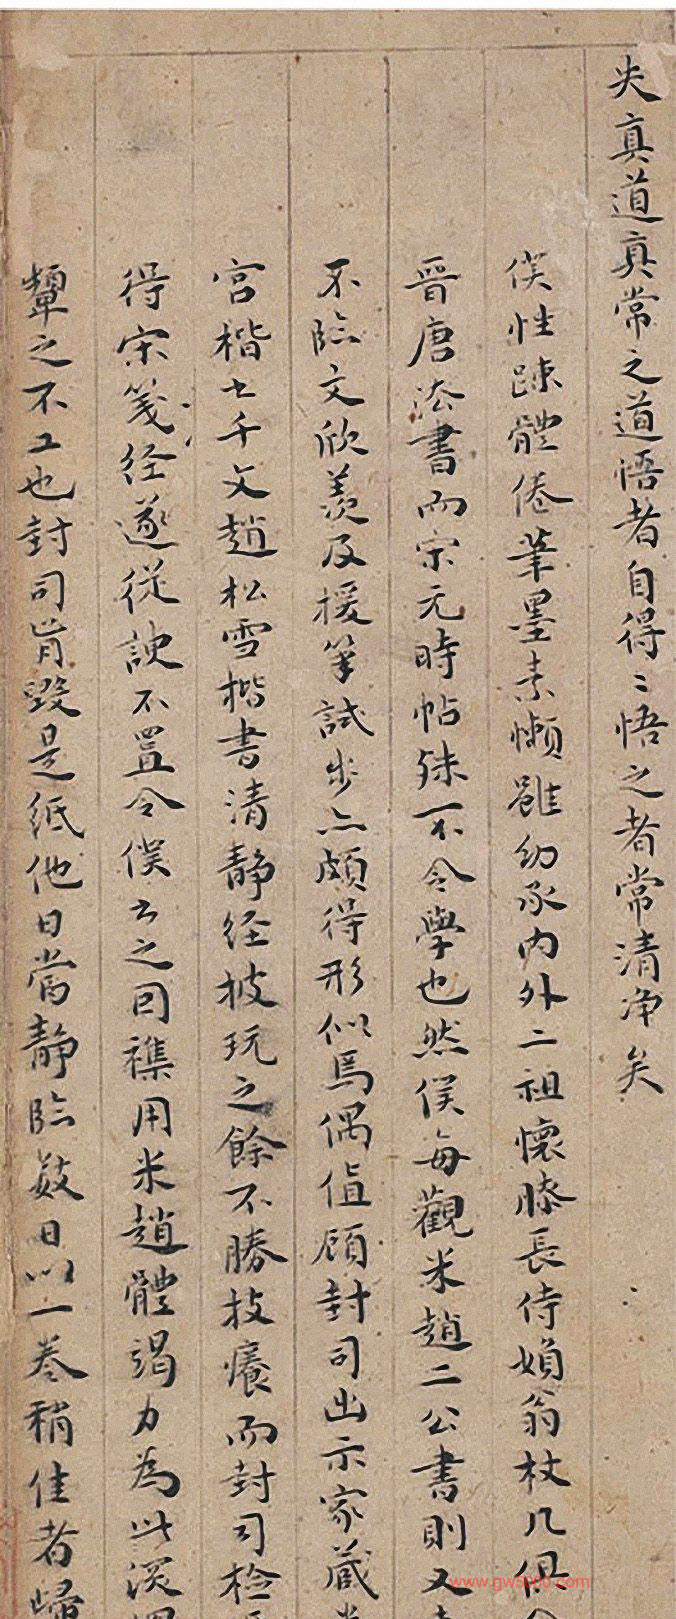 失真道真常之道悟者自得〻悟之者常清净矣
僕性踈體倦筆墨素懶雖幼承内外二祖懷膝長侍婦翁杖几俱
晋唐法書而宋元時帖殊不令學也然僕每觀米趙二公書則又
不臨文欣羡及援筆試步亦頗得形似焉偶值顧封司出示家蔵
宫楷七千文趙松雪楷書清靜经披玩之餘不勝技癢而封司檢
得宋箋经遂從諛不置令僕書之因襍用米趙體竭力為此深
顰之不工也封司肯毀是纸他日當靜臨數日以一卷稍佳者歸
www.gw5000.com